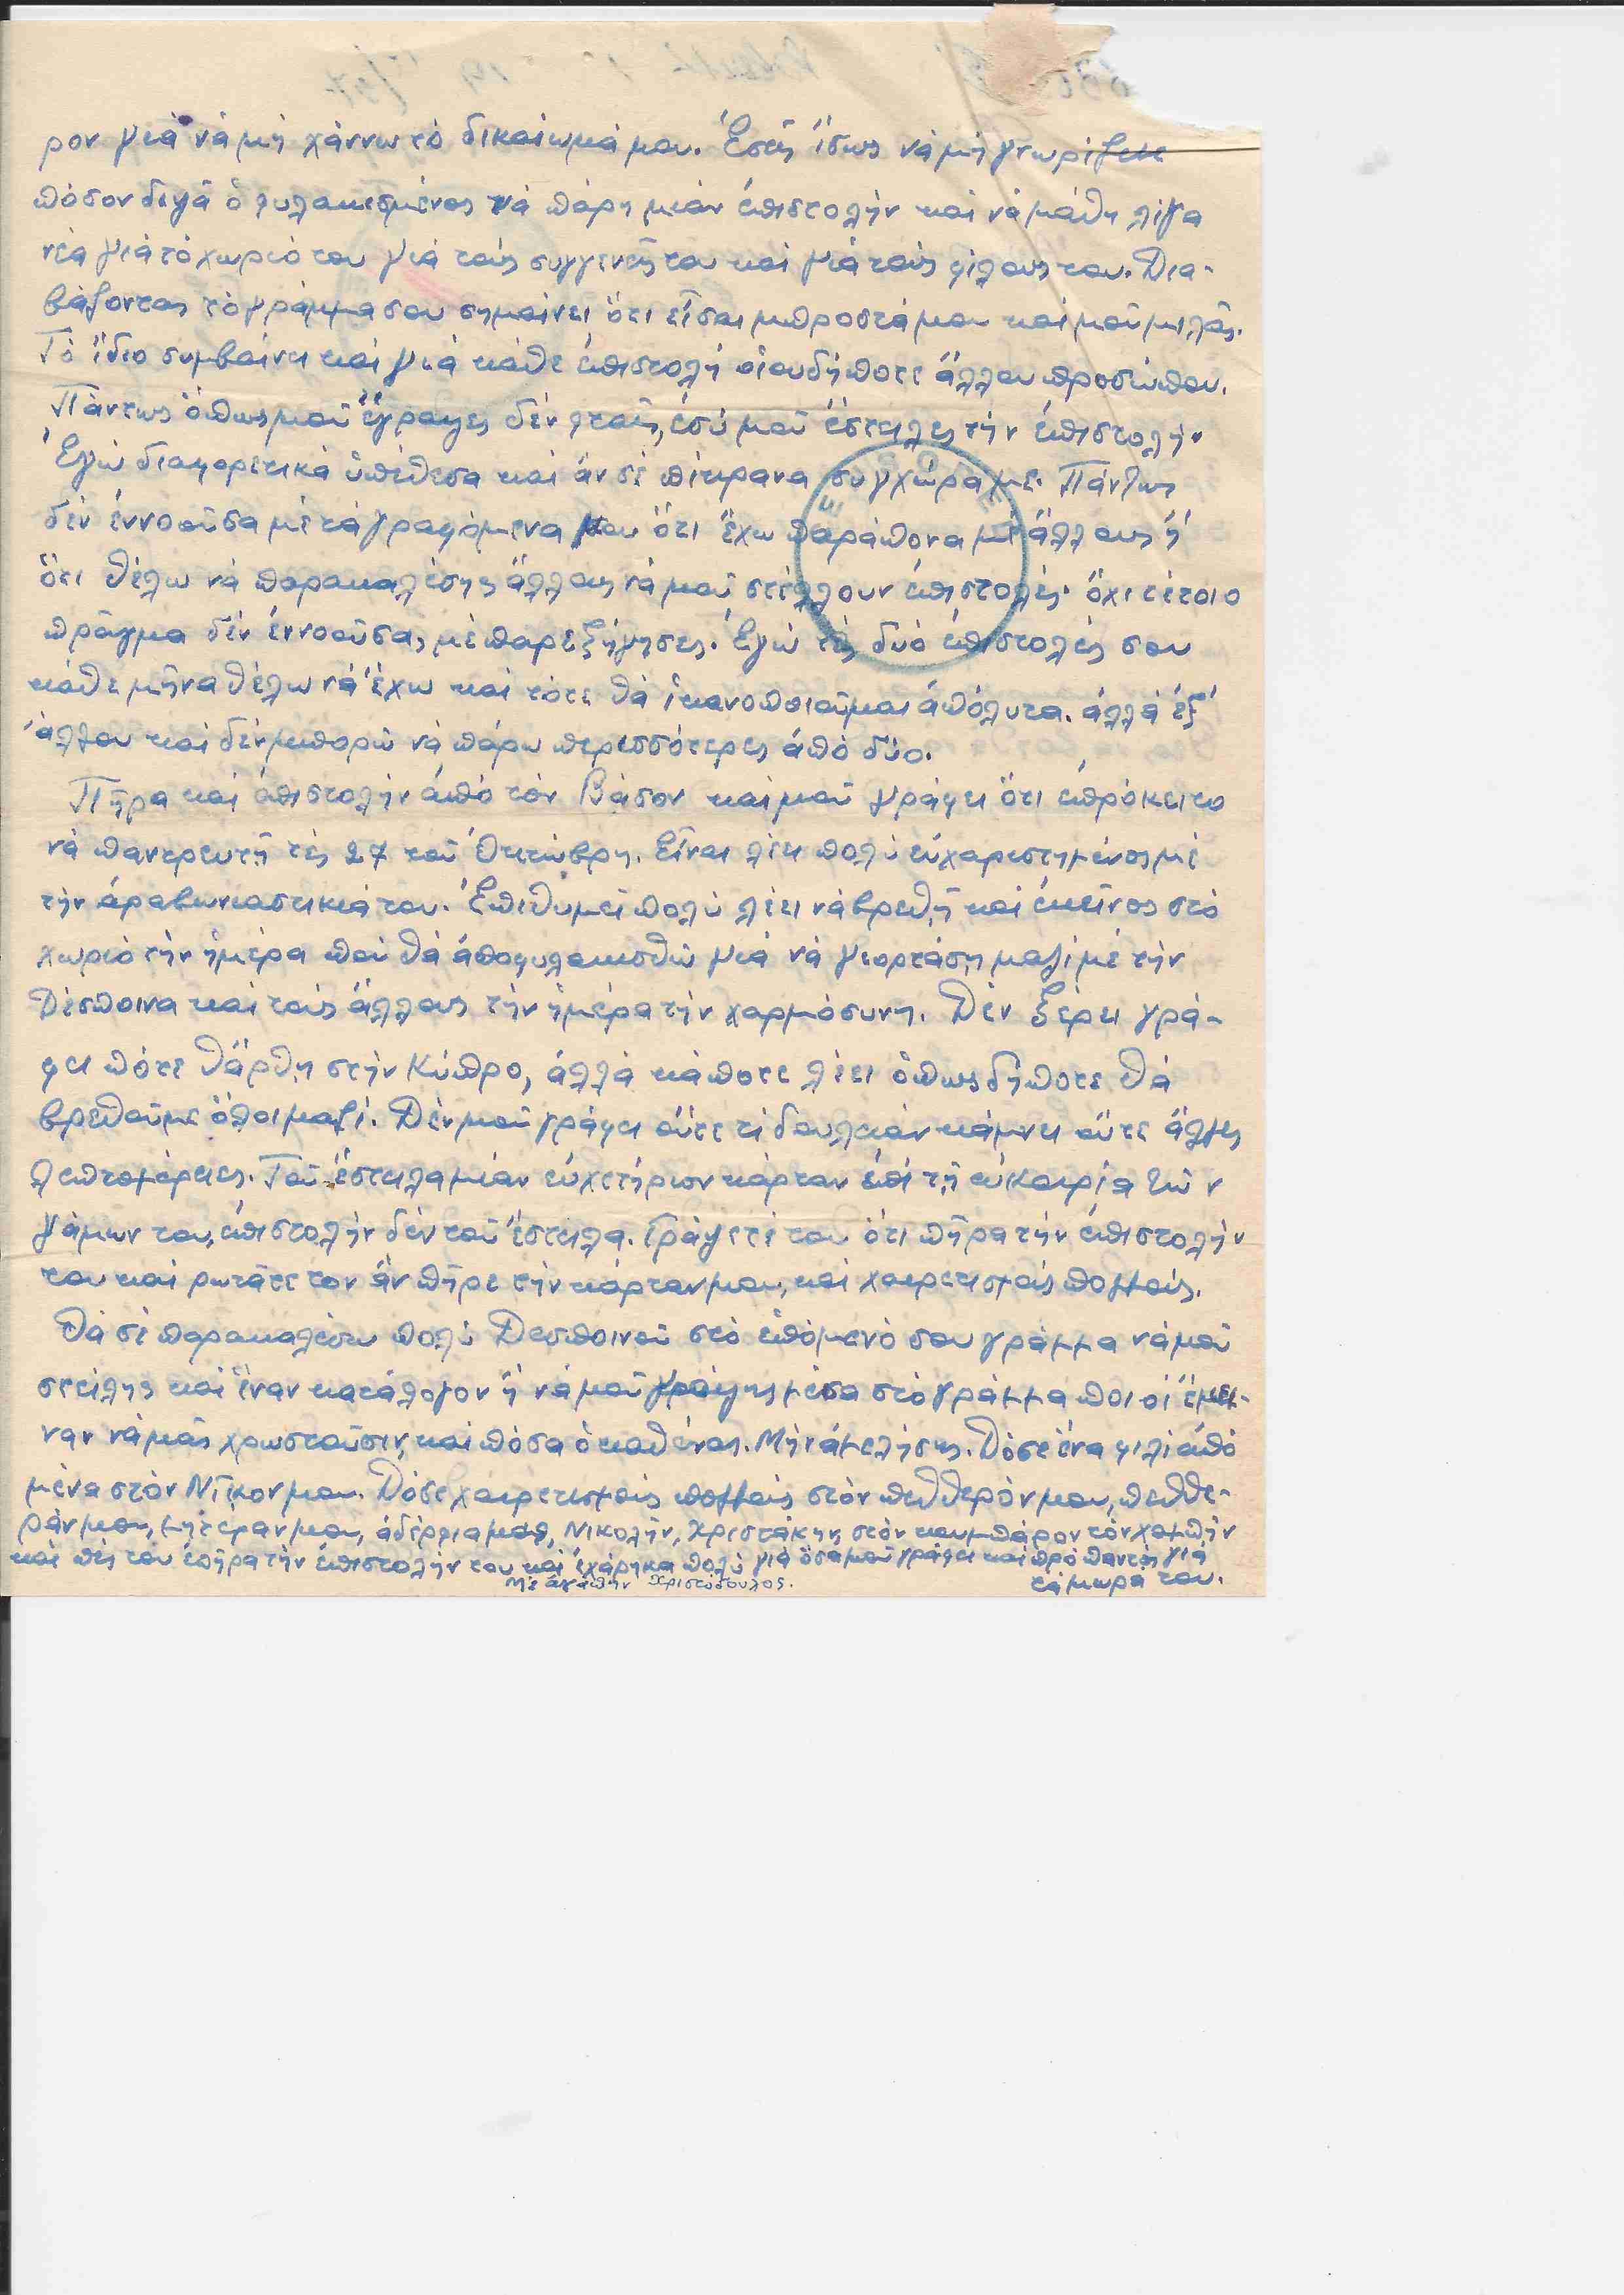 ρον γιά νά μή χάννω τό δικαίωμά μου. Ἐσεῖς ἴσως νά μή γνωρίζετε
πόσον διψᾶ ὁ φυλακισμένος νά πάρη μιάν ἐπιστολήν καί νά μάθη λίγα
νέα γιά τό χωριό του γιά τούς συγγενεῖς του καί γιά τούς φίλους του. Δια-
βάζοντας τό γράμμα σου σημαίνει ὅτι εἶσαι μπροστά μου καί μοῦ μιλᾶς.
Τό ἴδιο συμβαίνει καί γιά κάθε ἐπιστολή οἱουδήποτε ἄλλου προσώπου.
Πάντως ὅπως μοῦ ἔγραψες δέν φταῖς, ἐσύ μοῦ ἔστειλες τήν ἐπιστολήν
Ἐγώ διαφορετικά ὑπέθεσα καί ἄν σέ πίκρανα συγχώρα με. Πάντως
δέν ἐννοοῦσα μέ τά γραφόμενα μου ὅτι ἔχω παράπονα μέ ἄλλους ἤ
ὅτι θέλω νά παρακαλέσης ἄλλους νά μοῦ στέλλουν ἐπιστολές. ὄχι τέτοιο
πρᾶγμα δέν ἐννοοῦσα, μέ παρεξήγησες. Ἐγώ τίς δυό ἐπιστολές σου
κάθε μῆνα θέλω νά ἔχω καί τότε θά ἱκανοποιοῦμαι ἀπόλυτα. ἀλλά ἐξ'
ἄλλου καί δέν μπορῶ νά πάρω περισσότερες ἀπό δύο.
Πῆρα καί ἐπιστολήν ἀπό τόν Βάσον καί μοῦ γράφει ὅτι ἐπρόκειτο
νά παντρευτῆ τές 27 τοῦ Ὀκτώβρη. Εἶναι λέει πολύ εὐχαριστημένος μέ
τήν ἀραβωνιαστικιά του. Ἐπιθυμεῖ πολύ λέει νά βρεθῆ καί ἐκεῖνος στό
χωριό τήν ἡμέρα πού θά ἀποφυλακισθῶ γιά νά γιορτάση μαζί μέ τήν
Δέσποινα καί τούς ἄλλους τήν ἡμέρα τήν χαρμόσυνη. Δέν ξέρει γρά-
φει πότε θἄρθη στήν Κύπρο, ἀλλά κάποτε λέει ὁπωσδήποτε θά
βρεθοῦμε ὅλοι μαζί. Δέν μοῦ γράφει οὔτε τί δουλειάν κάμνει οὔτε ἄλλες
λεπτομέρειες. Τοῦ ἔστειλα μίαν εὐχετήριον κάρταν ἐπί τῆ εὐκαιρία τῶν
γάμων του, ἐπιστολήν δέν τοῦ ἔστειλα. Γράψετέ του ὅτι πῆρα τήν ἐπιστολήν
του καί ρωτᾶτε τον ἄν πῆρε τήν κάρταν μου, καί χαιρετισμούς πολλούς.
Θά σέ παρακαλέσω πολύ Δεσποινοῦ στό ἑπόμενό σου γράμμα νά μοῦ
στείλης καί ἕναν κατάλογον ἤ νά μοῦ γράψης μέσα στό γράμμα ποιοί ἔμει-
ναν νά μᾶς χρωστοῦσιν, καί πόσα ὁ καθένας. Μήν ἀμελήσης. Δόσε ἕνα φιλί ἀπό
μένα στόν Νῖκον μου. Δόσε χαιρετισμούς πολλούς στόν πεθθερόν μου, πεθθε-
ράν μου, μητέραν μου, ἀδέρφια μου, Νικολήν, Χριστάκην, στόν κουμπάρον τόν Χαμπήν
καί πές του ἐπῆρα τήν ἐπιστολήν του καί ἐχάρηκα πολύ γιά ὅσα μοῦ γράφει καί πρό παντός γιά
τά μωρά του.
Μέ ἀγάπην Χριστόδουλος.